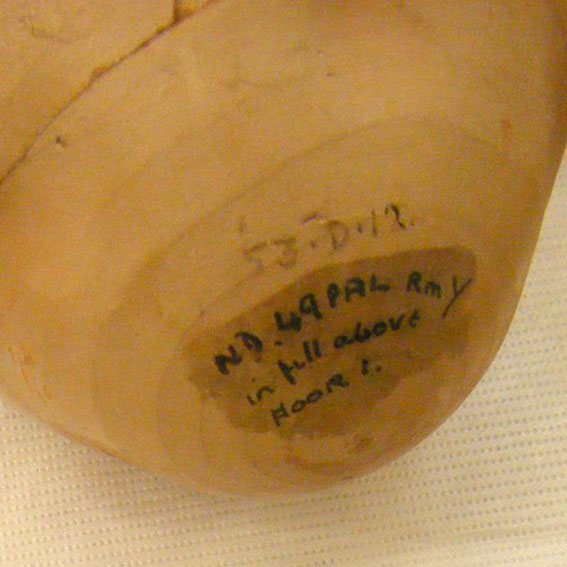 53.D.12.
ND.49 PAL Rm Y
in fill above
FLOOR 1.